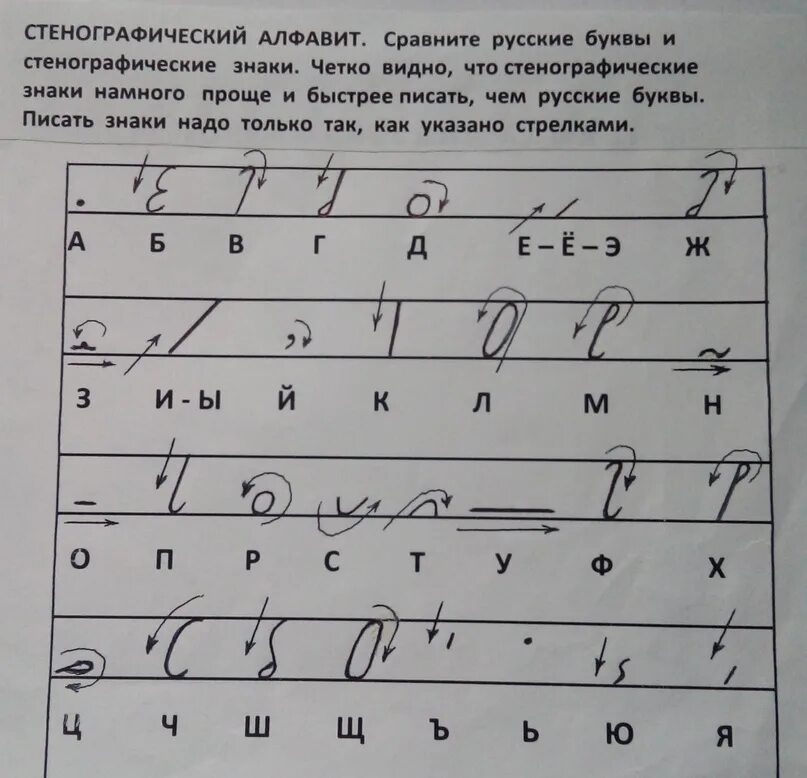 СТЕНОГРАФИЧЕСКИЙ АЛФАВИТ. Сравните русские буквы и
стенографические знаки. Четко видно, что стенографические
знаки намного проще и быстрее писать, чем русские буквы.
Писать знаки надо только так, как указано стрелками.
А Б В Г Д Е – Ё – Э Ж
З И - Ы Й К Л М Н
О П Р С Т У Ф Х
Ц Ч Ш Щ Ъ Ь Ю Я